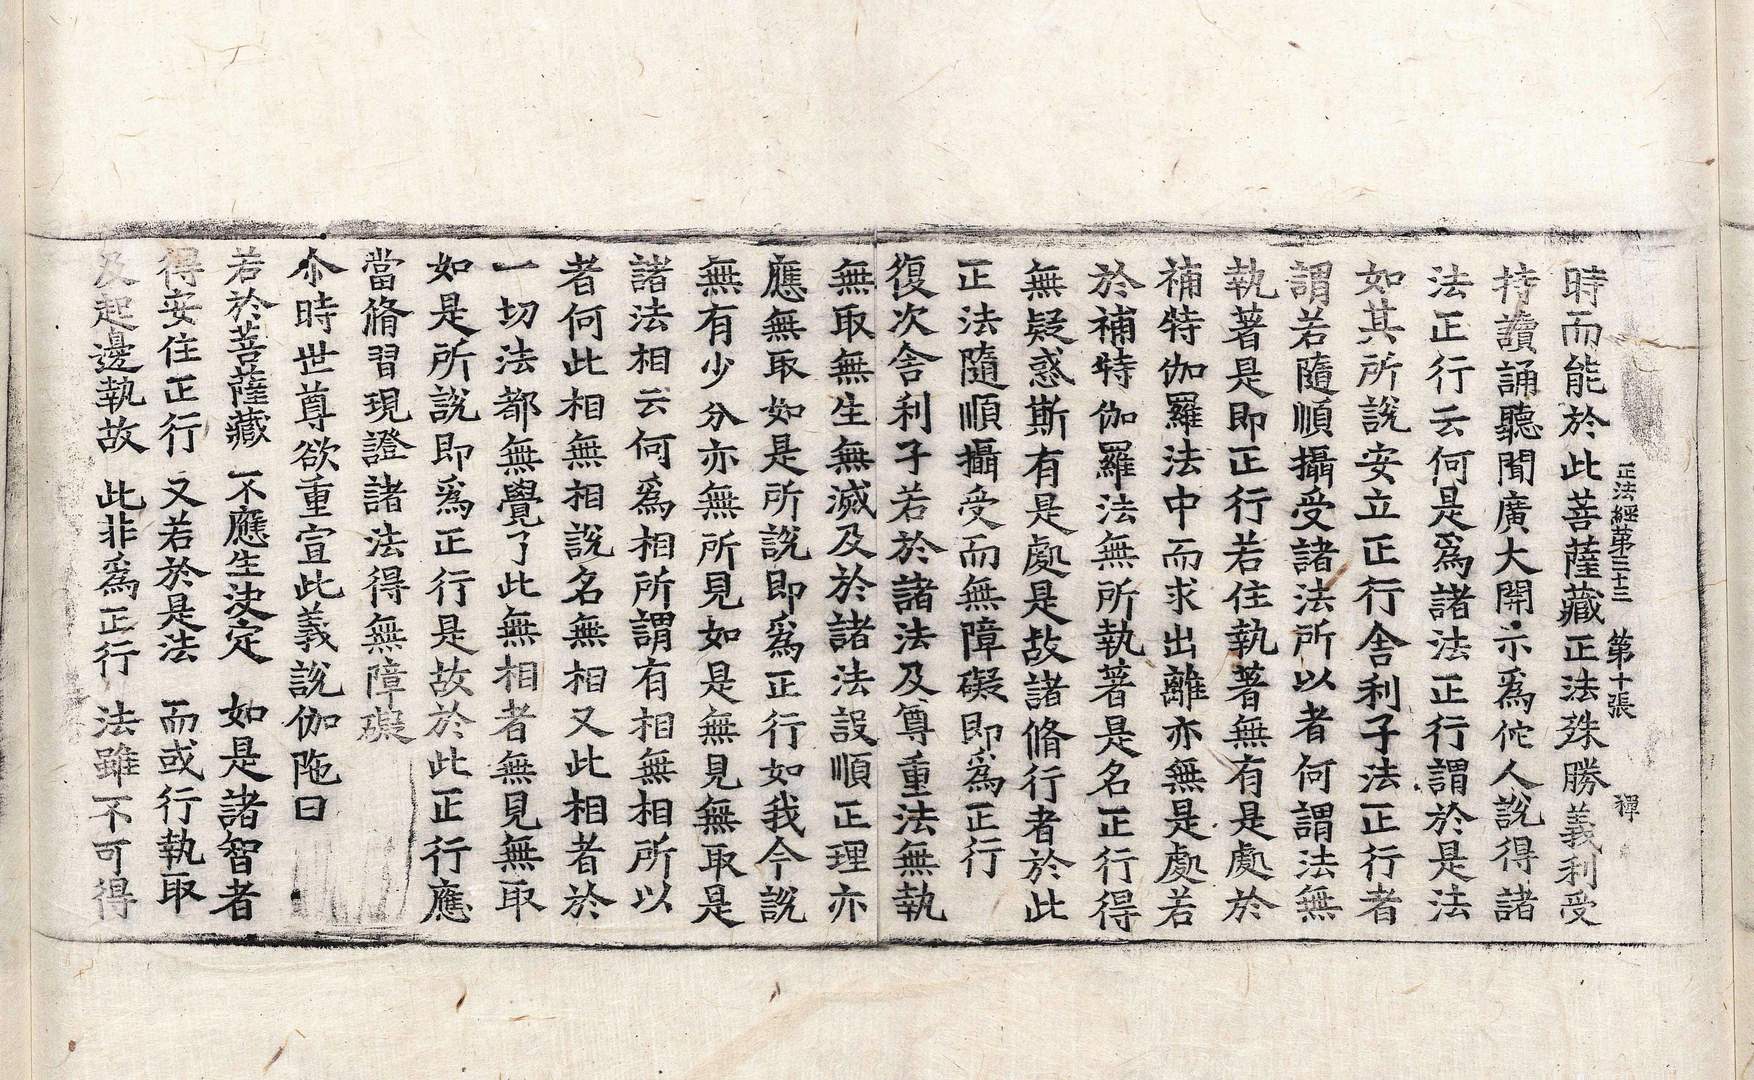 正法經第三十三　第十張　禪
時而能於此菩薩藏正法殊勝義利受
持讀誦聽聞廣大開示爲佗人說得諸
法正行云何是爲諸法正行謂於是法
如其所說安立正行舍利子法正行者
謂若隨順攝受諸法所以者何謂法無
執著是即正行若住執著無有是處於
補特伽羅法中而求出離亦無是處若
於補特伽羅法無所執著是名正行得
無疑惑斯有是處是故諸脩行者於此
正法隨順攝受而無障礙即爲正行
復次舍利子若於諸法及尊重法無執
無取無生無滅及於諸法設順正理亦
應無取如是所說即爲正行如我今說
無有少分亦無所見如是無見無取是
諸法相云何爲相所謂有相無相所以
者何此相無相說名無相又此相者於
一切法都無覺了此無相者無見無取
如是所說即爲正行是故於此正行應
當脩習現證諸法得無障礙
尒時世尊欲重宣此義說伽陁曰
若於菩薩藏　不應生決定　如是諸智者
得安住正行　又若於是法　而或行執取
及起邊執故　此非爲正行　法雖不可得